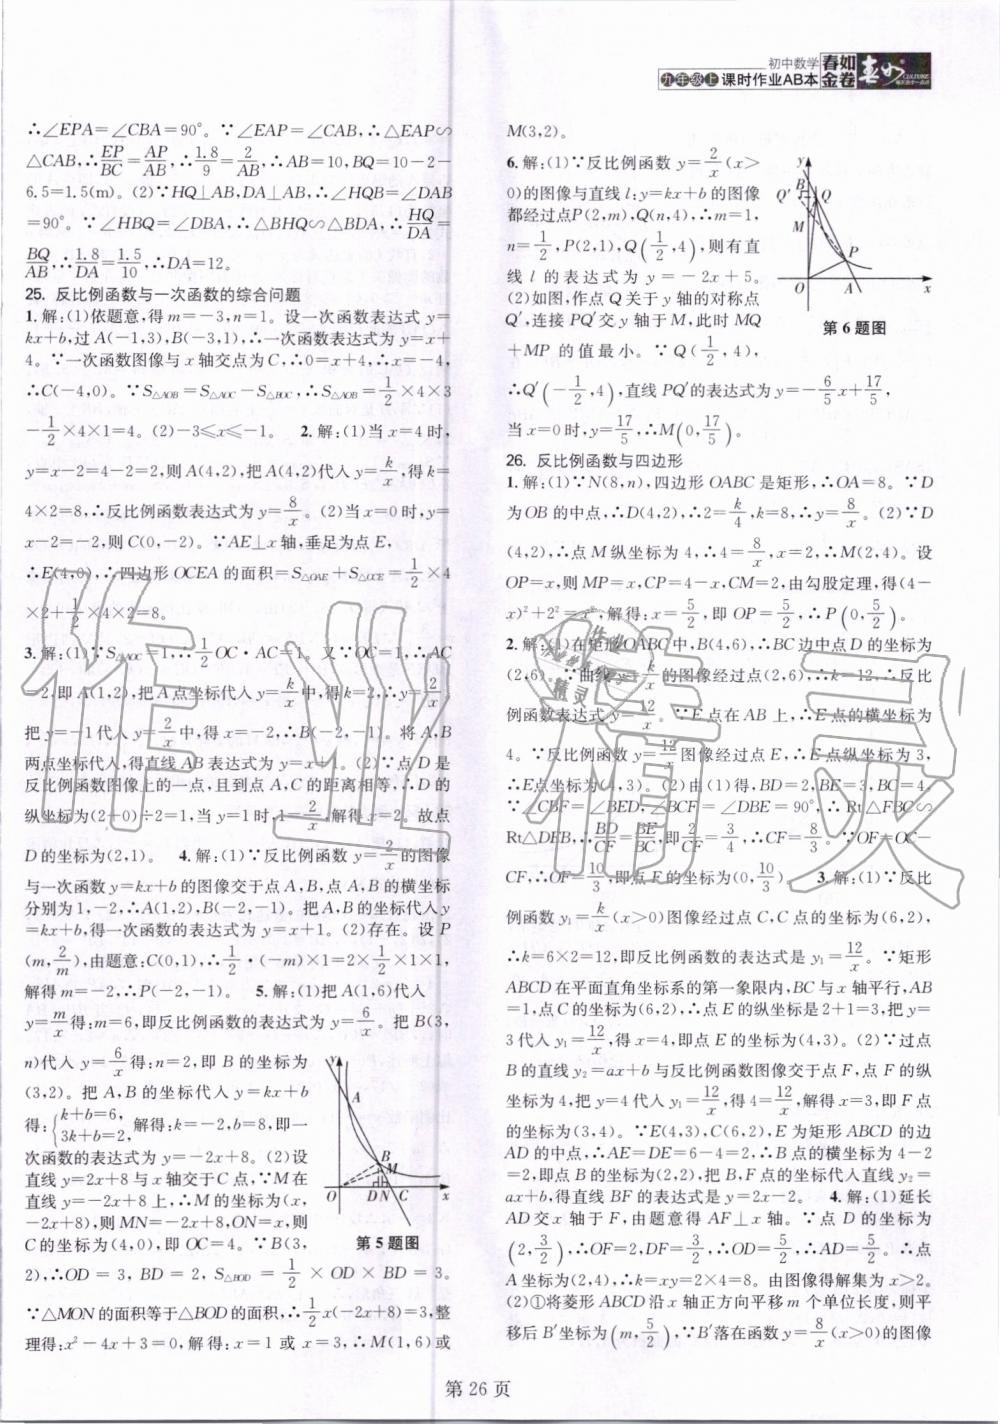 初中数学
九年级上 课时作业AB本
春如金卷
∴∠EPA=∠CBA=90°。∵∠EAP=∠CAB,∴△EAP∽
△CAB,∴EP/BC=AP/AB,∴1.8/9=2/AB,∴AB=10,BQ=10-2-
6.5=1.5(m)。(2)∵HQ⊥AB,DA⊥AB,∴∠HQB=∠DAB
=90°。∵∠HBQ=∠DBA,∴△BHQ∽△BDA,∴HQ/DA=
BQ/AB,∴1.8/DA=1.5/10,∴DA=12。
25. 反比例函数与一次函数的综合问题
1.解:(1)依题意,得m=-3,n=1。设一次函数表达式y=
kx+b,过A(-1,3),B(-3,1),∴一次函数表达式为y=x+
4。∵一次函数图像与x轴交点为C,∴0=x+4,∴x=-4,
∴C(-4,0)。∵S△AOB=S△AOC-S△BOC,∴S△AOB=1/2×4×3
-1/2×4×1=4。(2)-3≤x≤-1。 2.解:(1)当x=4时,
y=x-2=4-2=2,则A(4,2),把A(4,2)代入y=k/x,得k=
4×2=8,∴反比例函数表达式为y=8/x。(2)当x=0时,y=
x-2=-2,则C(0,-2)。∵AE⊥x轴,垂足为点E,
∴E(4,0),∴四边形OCEA的面积=S△OAE+S△OCE=1/2×4
×2+1/2×4×2=8。
3.解:(1)∵S△AOC=1,∴1/2OC·AC=1。又∵OC=1,∴AC
=2,即A(1,2),把A点坐标代入y=k/x中,得k=2,∴y=2/x,
把y=-1代入y=2/x中,得x=-2,∴B(-2,-1)。将A,B
两点坐标代入,得直线AB表达式为y=x+1。(2)∵点D是
反比例函数图像上的一点,且到点A,C的距离相等,∴点D的
纵坐标为(2+0)÷2=1,当y=1时,1=2/x,解得x=2。故点
D的坐标为(2,1)。 4.解:(1)∵反比例函数y=2/x的图像
与一次函数y=kx+b的图像交于点A,B,点A,B的横坐标
分别为1,-2,∴A(1,2),B(-2,-1)。把A,B的坐标代入y
=kx+b,得一次函数的表达式为y=x+1。(2)存在。设P
(m,2/m),由题意:C(0,1),∴1/2·(-m)×1=2×1/2×1×1,
解得m=-2,∴P(-2,-1)。 5.解:(1)把A(1,6)代入
y=m/x得:m=6,即反比例函数的表达式为y=6/x。把B(3,
n)代入y=6/x得:n=2,即B的坐标为
(3,2)。把A,B的坐标代入y=kx+b
得:{k+b=6, 3k+b=2,解得:k=-2,b=8,即一
次函数的表达式为y=-2x+8。(2)设
直线y=-2x+8与x轴交于C点,∵M在
直线y=-2x+8上,∴M的坐标为(x,
-2x+8),则MN=-2x+8,ON=x,则
C的坐标为(4,0),即OC=4。∵B(3,
2),∴OD=3,BD=2,S△BOD=1/2×OD×BD=3。
∵△MON的面积等于△BOD的面积,∴1/2x(-2x+8)=3,整
理得:x²-4x+3=0,解得:x=1或x=3,∴M(1,6)或
y A B M O D N C x
第5题图
M(3,2)。
6.解:(1)∵反比例函数y=2/x(x>
0)的图像与直线l:y=kx+b的图像
都经过点P(2,m),Q(n,4),∴m=1,
n=1/2,P(2,1),Q(1/2,4),则有直
线l的表达式为y=-2x+5。
(2)如图,作点Q关于y轴的对称点
Q′,连接PQ′交y轴于M,此时MQ
+MP的值最小。∵Q(1/2,4),
∴Q′(-1/2,4),直线PQ′的表达式为y=-6/5x+17/5,
当x=0时,y=17/5,∴M(0,17/5)。
y B Q′ Q M P O A x
第6题图
26. 反比例函数与四边形
1.解:(1)∵N(8,n),四边形OABC是矩形,∴OA=8。∵D
为OB的中点,∴D(4,2),∴2=k/4,k=8,∴y=8/x。(2)∵D
(4,2),∴点M纵坐标为4,∴4=8/x,x=2,∴M(2,4)。设
OP=x,则MP=x,CP=4-x,CM=2,由勾股定理,得(4-
x)²+2²=x²,解得:x=5/2,即OP=5/2,∴P(0,5/2)。
2.解:(1)在矩形OABC中,B(4,6),∴BC边中点D的坐标为
(2,6)。∵曲线y=k/x的图像经过点(2,6),∴k=12,∴反比
例函数表达式为y=12/x。∵E点在AB上,∴E点的横坐标为
4。∵反比例函数y=12/x图像经过点E,∴E点纵坐标为3,
∴E点坐标为(4,3)。(2)由(1)得,BD=2,BE=3,BC=4。
∵∠CBF=∠BED,∠BCF=∠DBE=90°,∴Rt△FBC∽
Rt△DEB,∴BD/CF=BE/BC,即2/CF=3/4,∴CF=8/3。∵OF=OC-
CF,∴OF=10/3,即点F的坐标为(0,10/3)。 3.解:(1)∵反比
例函数y₁=k/x(x>0)图像经过点C,C点的坐标为(6,2),
∴k=6×2=12,即反比例函数的表达式是y₁=12/x。∵矩形
ABCD在平面直角坐标系的第一象限内,BC与x轴平行,AB
=1,点C的坐标为(6,2),∴点E的纵坐标是2+1=3,把y=
3代入y₁=12/x得:x=4,即点E的坐标为(4,3)。(2)∵过点
B的直线y₂=ax+b与反比例函数图像交于点F,点F的纵
坐标为4,把y=4代入y₁=12/x,得4=12/x,解得x=3,即F点
的坐标为(3,4)。∵E(4,3),C(6,2),E为矩形ABCD的边
AD的中点,∴AE=DE=6-4=2,∴B点的横坐标为4-2
=2,即点B的坐标为(2,2),把B,F点的坐标代入直线y₂=
ax+b,得直线BF的表达式是y=2x-2。 4.解:(1)延长
AD交x轴于F,由题意得AF⊥x轴。∵点D的坐标为
(2,3/2),∴OF=2,DF=3/2,∴OD=5/2,∴AD=5/2。∴点
A坐标为(2,4),∴k=xy=2×4=8。由图像得解集为x>2。
(2)①将菱形ABCD沿x轴正方向平移m个单位长度,则平
移后B′坐标为(m,5/2),∵B′落在函数y=8/x(x>0)的图像
第26页
作业精灵